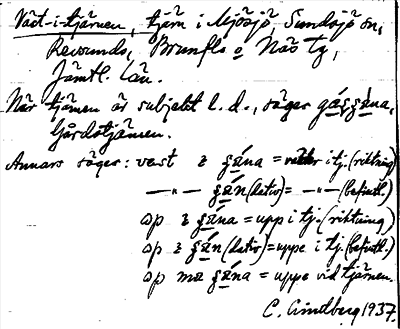 Väst-i-tjärnen, tjärn i Mjösjö, Sundsjö sn,
Revsunds, Brunflo o Näs tg,
Jämtl. län.
När tjärnen är subjekt l. d., säger
Gårdstjärnen.
Annars säger: vest = väster i tj. (riktning)
—"— (dativ) = —"— (befintl.)
op = upp i tj. (riktning)
op (dativ) = uppe i tj. (befintl.)
op = uppe vid tjärnen.
C. Lindberg 1937.